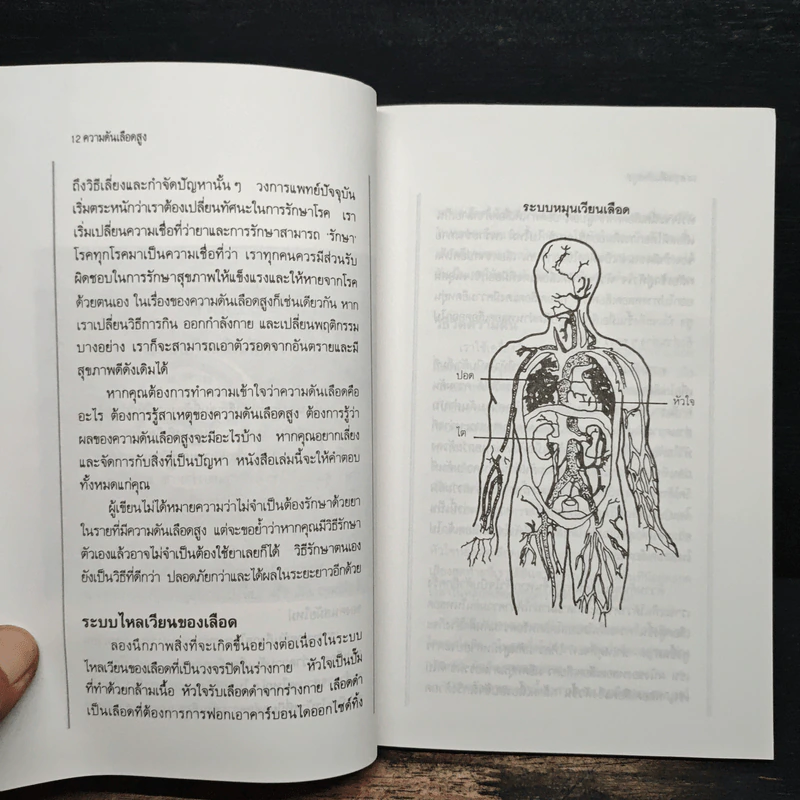 12 ความดันเลือดสูง
ถึงวิธีเลี่ยงและกำจัดปัญหานั้น ๆ วงการแพทย์ปัจจุบัน
เริ่มตระหนักว่าเราต้องเปลี่ยนทัศนะในการรักษาโรค เรา
เริ่มเปลี่ยนความเชื่อที่ว่ายาและการรักษาสามารถ 'รักษา'
โรคทุกโรคมาเป็นความเชื่อที่ว่า เราทุกคนควรมีส่วนรับ
ผิดชอบในการรักษาสุขภาพให้แข็งแรงและให้หายจากโรค
ด้วยตนเอง ในเรื่องของความดันเลือดสูงก็เช่นเดียวกัน หาก
เราเปลี่ยนวิธีการกิน ออกกำลังกาย และเปลี่ยนพฤติกรรม
บางอย่าง เราก็จะสามารถเอาตัวรอดจากอันตรายและมี
สุขภาพดีดังเดิมได้
หากคุณต้องการทำความเข้าใจว่าความดันเลือดคือ
อะไร ต้องการรู้สาเหตุของความดันเลือดสูง ต้องการรู้ว่า
ผลของความดันเลือดสูงจะมีอะไรบ้าง หากคุณอยากเลี่ยง
และจัดการกับสิ่งที่เป็นปัญหา หนังสือเล่มนี้จะให้คำตอบ
ทั้งหมดแก่คุณ
ผู้เขียนไม่ได้หมายความว่าไม่จำเป็นต้องรักษาด้วยยา
ในรายที่มีความดันเลือดสูง แต่จะขอย้ำว่าหากคุณมีวิธีรักษา
ตัวเองแล้วอาจไม่จำเป็นต้องใช้ยาเลยก็ได้ วิธีรักษาตนเอง
ยังเป็นวิธีที่ดีกว่า ปลอดภัยกว่าและได้ผลในระยะยาวอีกด้วย
ระบบไหลเวียนของเลือด
ลองนึกภาพสิ่งที่จะเกิดขึ้นอย่างต่อเนื่องในระบบ
ไหลเวียนของเลือดที่เป็นวงจรปิดในร่างกาย หัวใจเป็นปั๊ม
ที่ทำด้วยกล้ามเนื้อ หัวใจรับเลือดดำจากร่างกาย เลือดดำ
เป็นเลือดที่ต้องการการฟอกเอาคาร์บอนไดออกไซด์ทิ้ง
ระบบหมุนเวียนเลือด
ปอด
หัวใจ
ไต